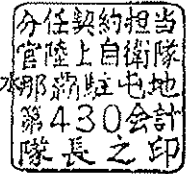 分任契約担当
官陸上自衛隊
那覇駐屯地
第430会計
隊長之印
水